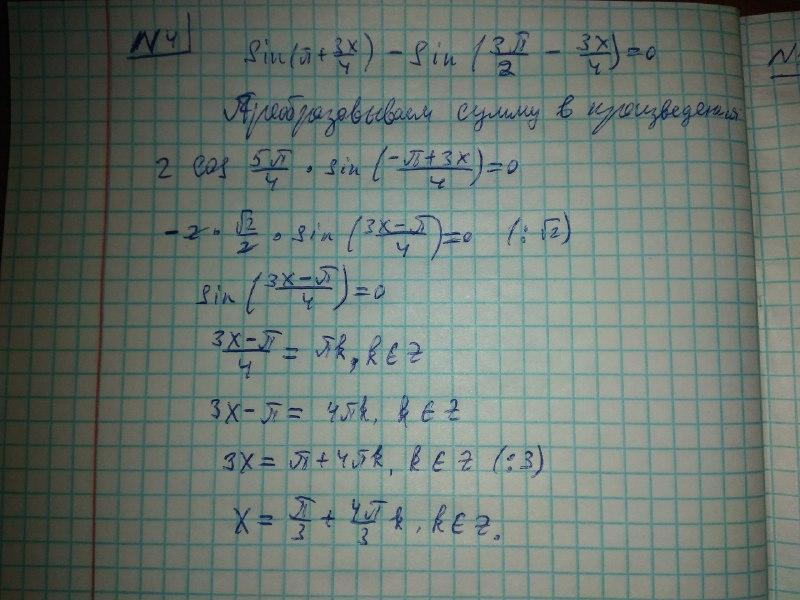 N4 sin(π + 3x/4) - sin(3π/2 - 3x/4) = 0
Преобразовываем сумму в произведения
2 cos 5π/4 · sin((-π+3x)/4) = 0
-2 · √2/2 · sin((3x-π)/4) = 0 (: √2)
sin((3x-π)/4) = 0
(3x-π)/4 = πk, k ∈ z
3x-π = 4πk, k ∈ z
3x = π+4πk, k ∈ z (:3)
x = π/3 + 4π/3 k, k ∈ z.
N